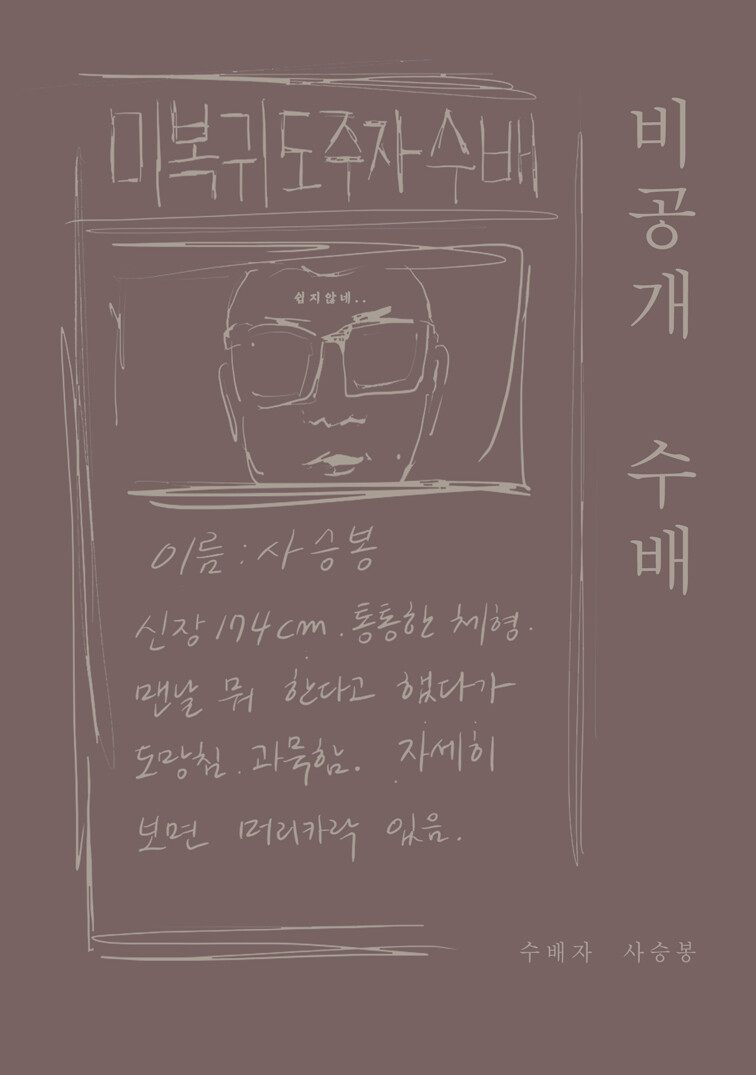 비공개 수배
미복귀도주자수배
쉽지않네..
이름:사승봉
신장 174cm. 통통한 체형.
맨날 뭐 한다고 했다가
도망침. 과묵함. 자세히
보면 머리카락 있음.
수배자 사승봉